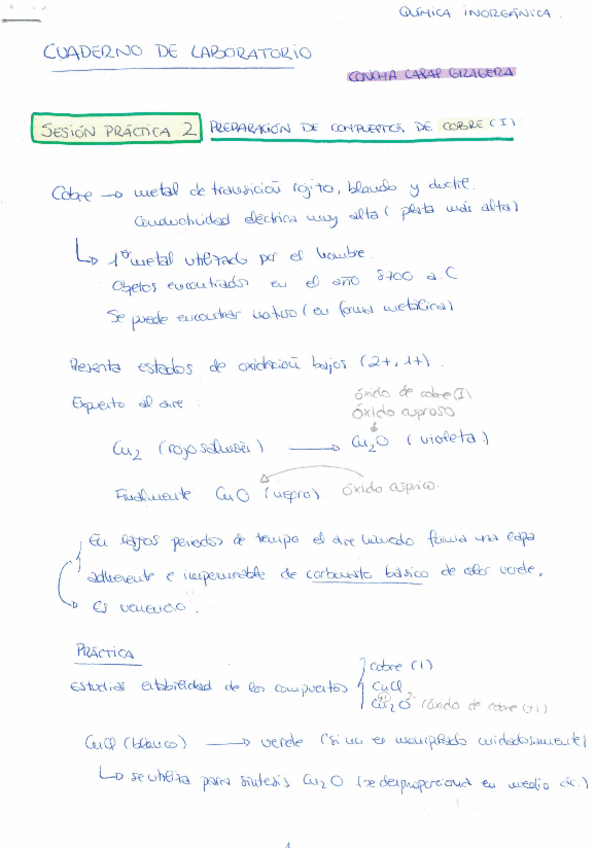 QUÍMICA INORGÁNICA.
CUADERNO DE LABORATORIO
CONCHA CARAP GRAGERA
SESIÓN PRÁCTICA 2 PREPARACIÓN DE COMPUESTOS DE COBRE (I)
Cobre → metal de transición rojizo, blando y ductil.
Conductividad eléctrica muy alta (plata más alta)
↳ 1º metal utilizado por el hombre.
Objetos encontrados en el año 8700 a.C
Se puede encontrar nativo (en forma metálica)
Presenta estados de oxidación bajos (2+, 1+).
Expuesto al aire :
óxido de cobre (I)
óxido cuproso
Cu₂ (rojo salmón) → Cu₂O (violeta)
Finalmente CuO (negro) óxido cúprico.
En largos periodos de tiempo el aire húmedo forma una capa
adherente e impermeable de carbonato básico de color verde.
Es venenoso.
PRÁCTICA
Estudiar estabilidad de los compuestos
cobre (I)
CuCl
Cu₂O
CuCl (blanco) → verde (si no es manipulado cuidadosamente)
↳ se utiliza para síntesis Cu₂O (se desproporciona en medio ác.)
1